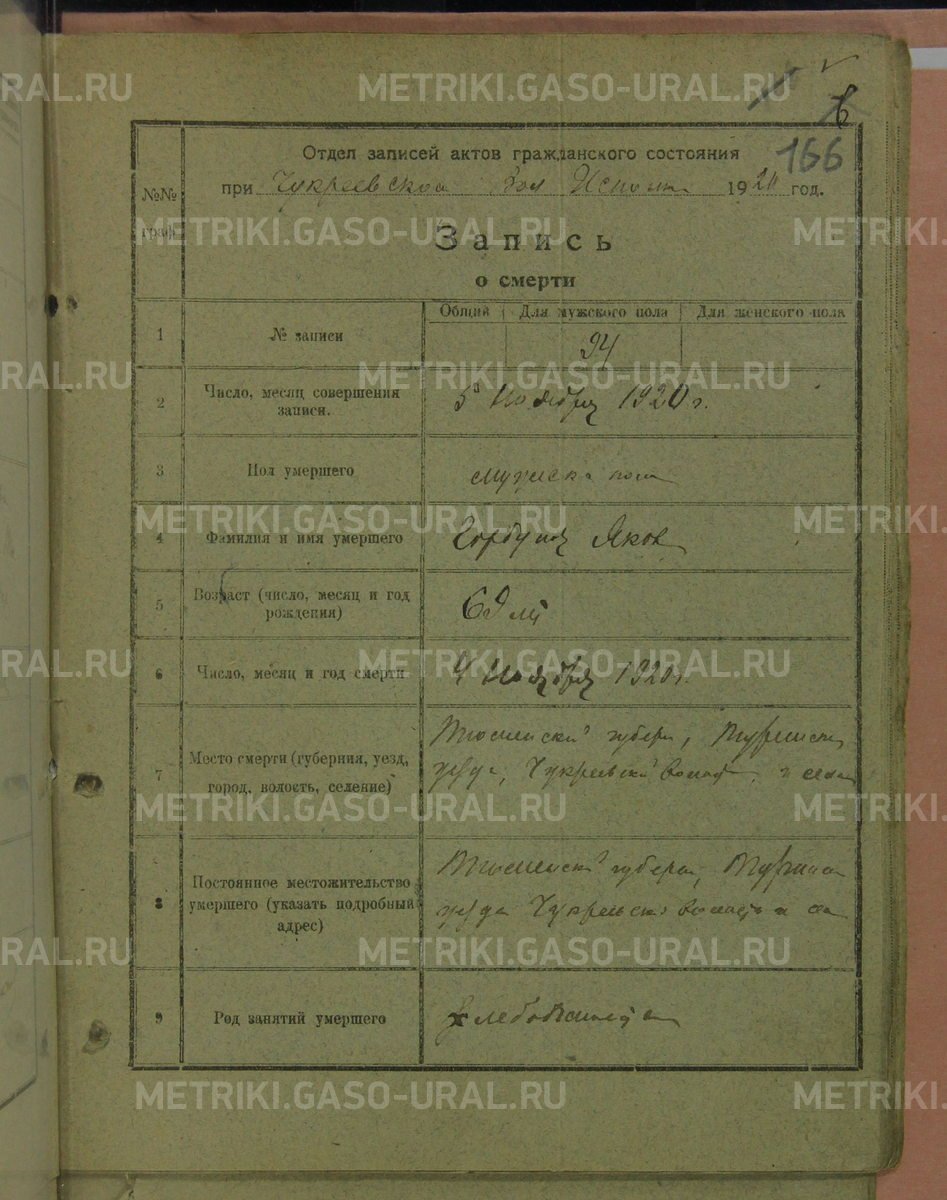 METRIKI.GASO-URAL.RU
166
Отдел записей актов гражданского состояния
при Чукреевском Вол Исполк 1920 год.
№№ граф
Запись
о смерти
Общий Для мужского пола Для женского пола
1 № записи 94
2 Число, месяц совершения записи. 5 Ноября 1920 г.
3 Пол умершего мужска пола
4 Фамилия и имя умершего Горбунов Яков
5 Возраст (число, месяц и год рождения) 69 л
6 Число, месяц и год смерти 4 Ноября 1920 г.
7 Место смерти (губерния, уезд, город, волость, селение) Тюменской губерн, Туринск
уезда, Чукреевской волост, и села
8 Постоянное местожительство умершего (указать подробный адрес) Тюменск губерн, Туринск
уезда Чукреевско волость и се
9 Род занятий умершего Хлебопаш